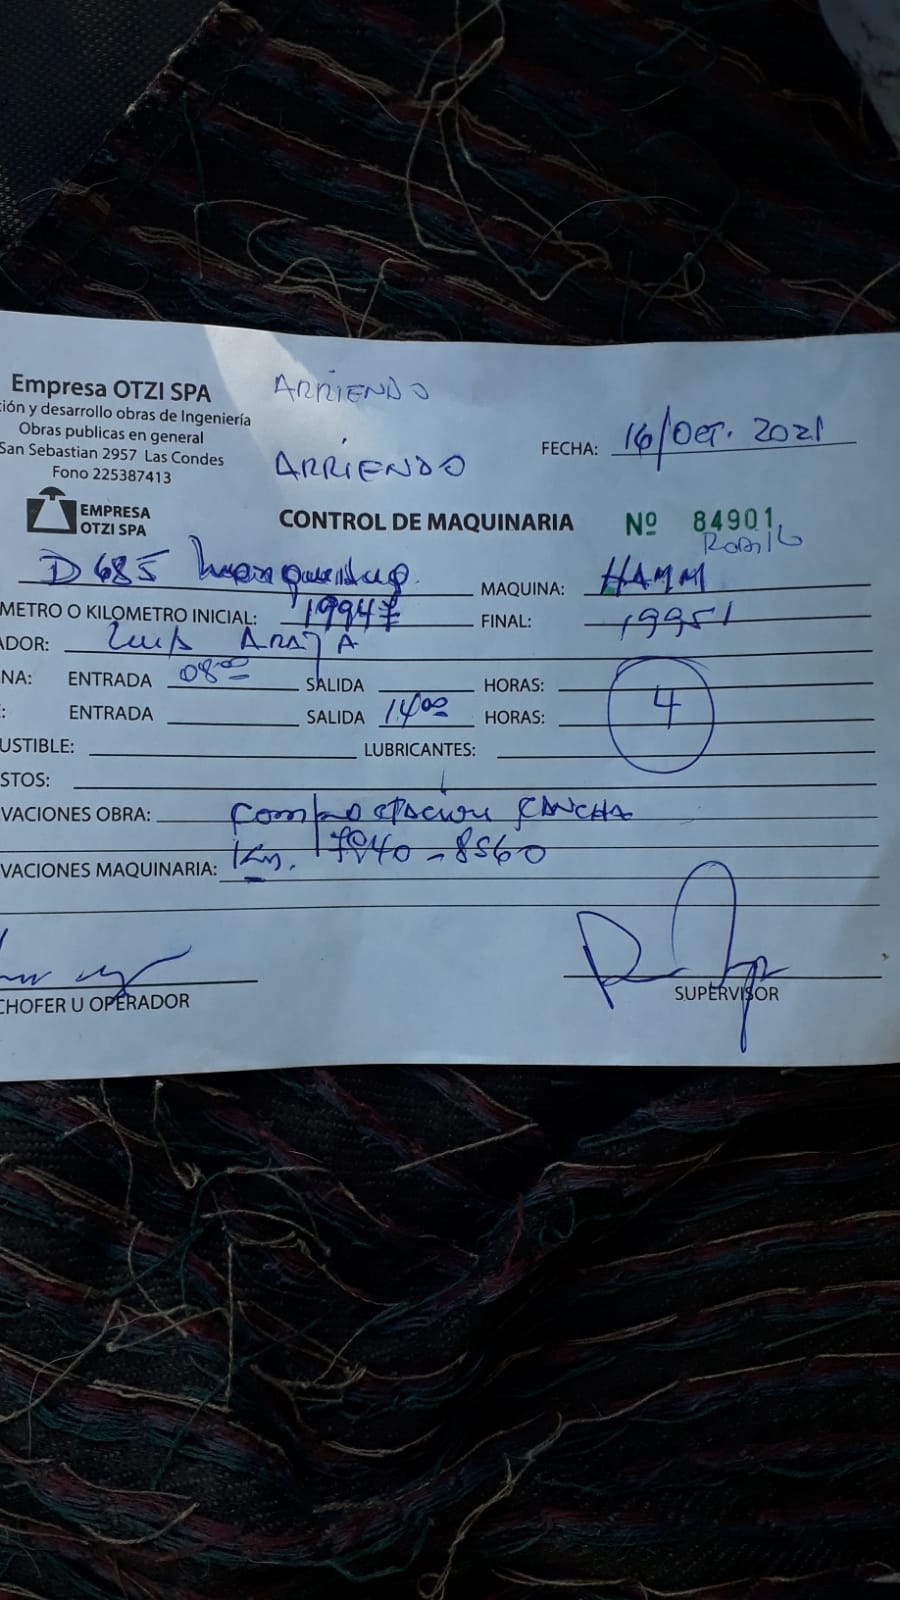 Empresa OTZI SPA
ción y desarrollo obras de Ingeniería
Obras publicas en general
San Sebastian 2957 Las Condes
Fono 225387413
ARRIENDO
ARRIENDO
FECHA: 16/OCT. 2021
EMPRESA
OTZI SPA
CONTROL DE MAQUINARIA
Nº 84901
Rodillo
D685
MAQUINA: HAMM
METRO O KILOMETRO INICIAL: 19947 FINAL: 19951
ADOR: Luis ARAYA
NA: ENTRADA 08:00 SALIDA HORAS:
E: ENTRADA SALIDA 14:00 HORAS: 4
USTIBLE: LUBRICANTES:
STOS:
VACIONES OBRA: Compactacion CANCHA
Km. 8560
VACIONES MAQUINARIA:
CHOFER U OPERADOR
SUPERVISOR